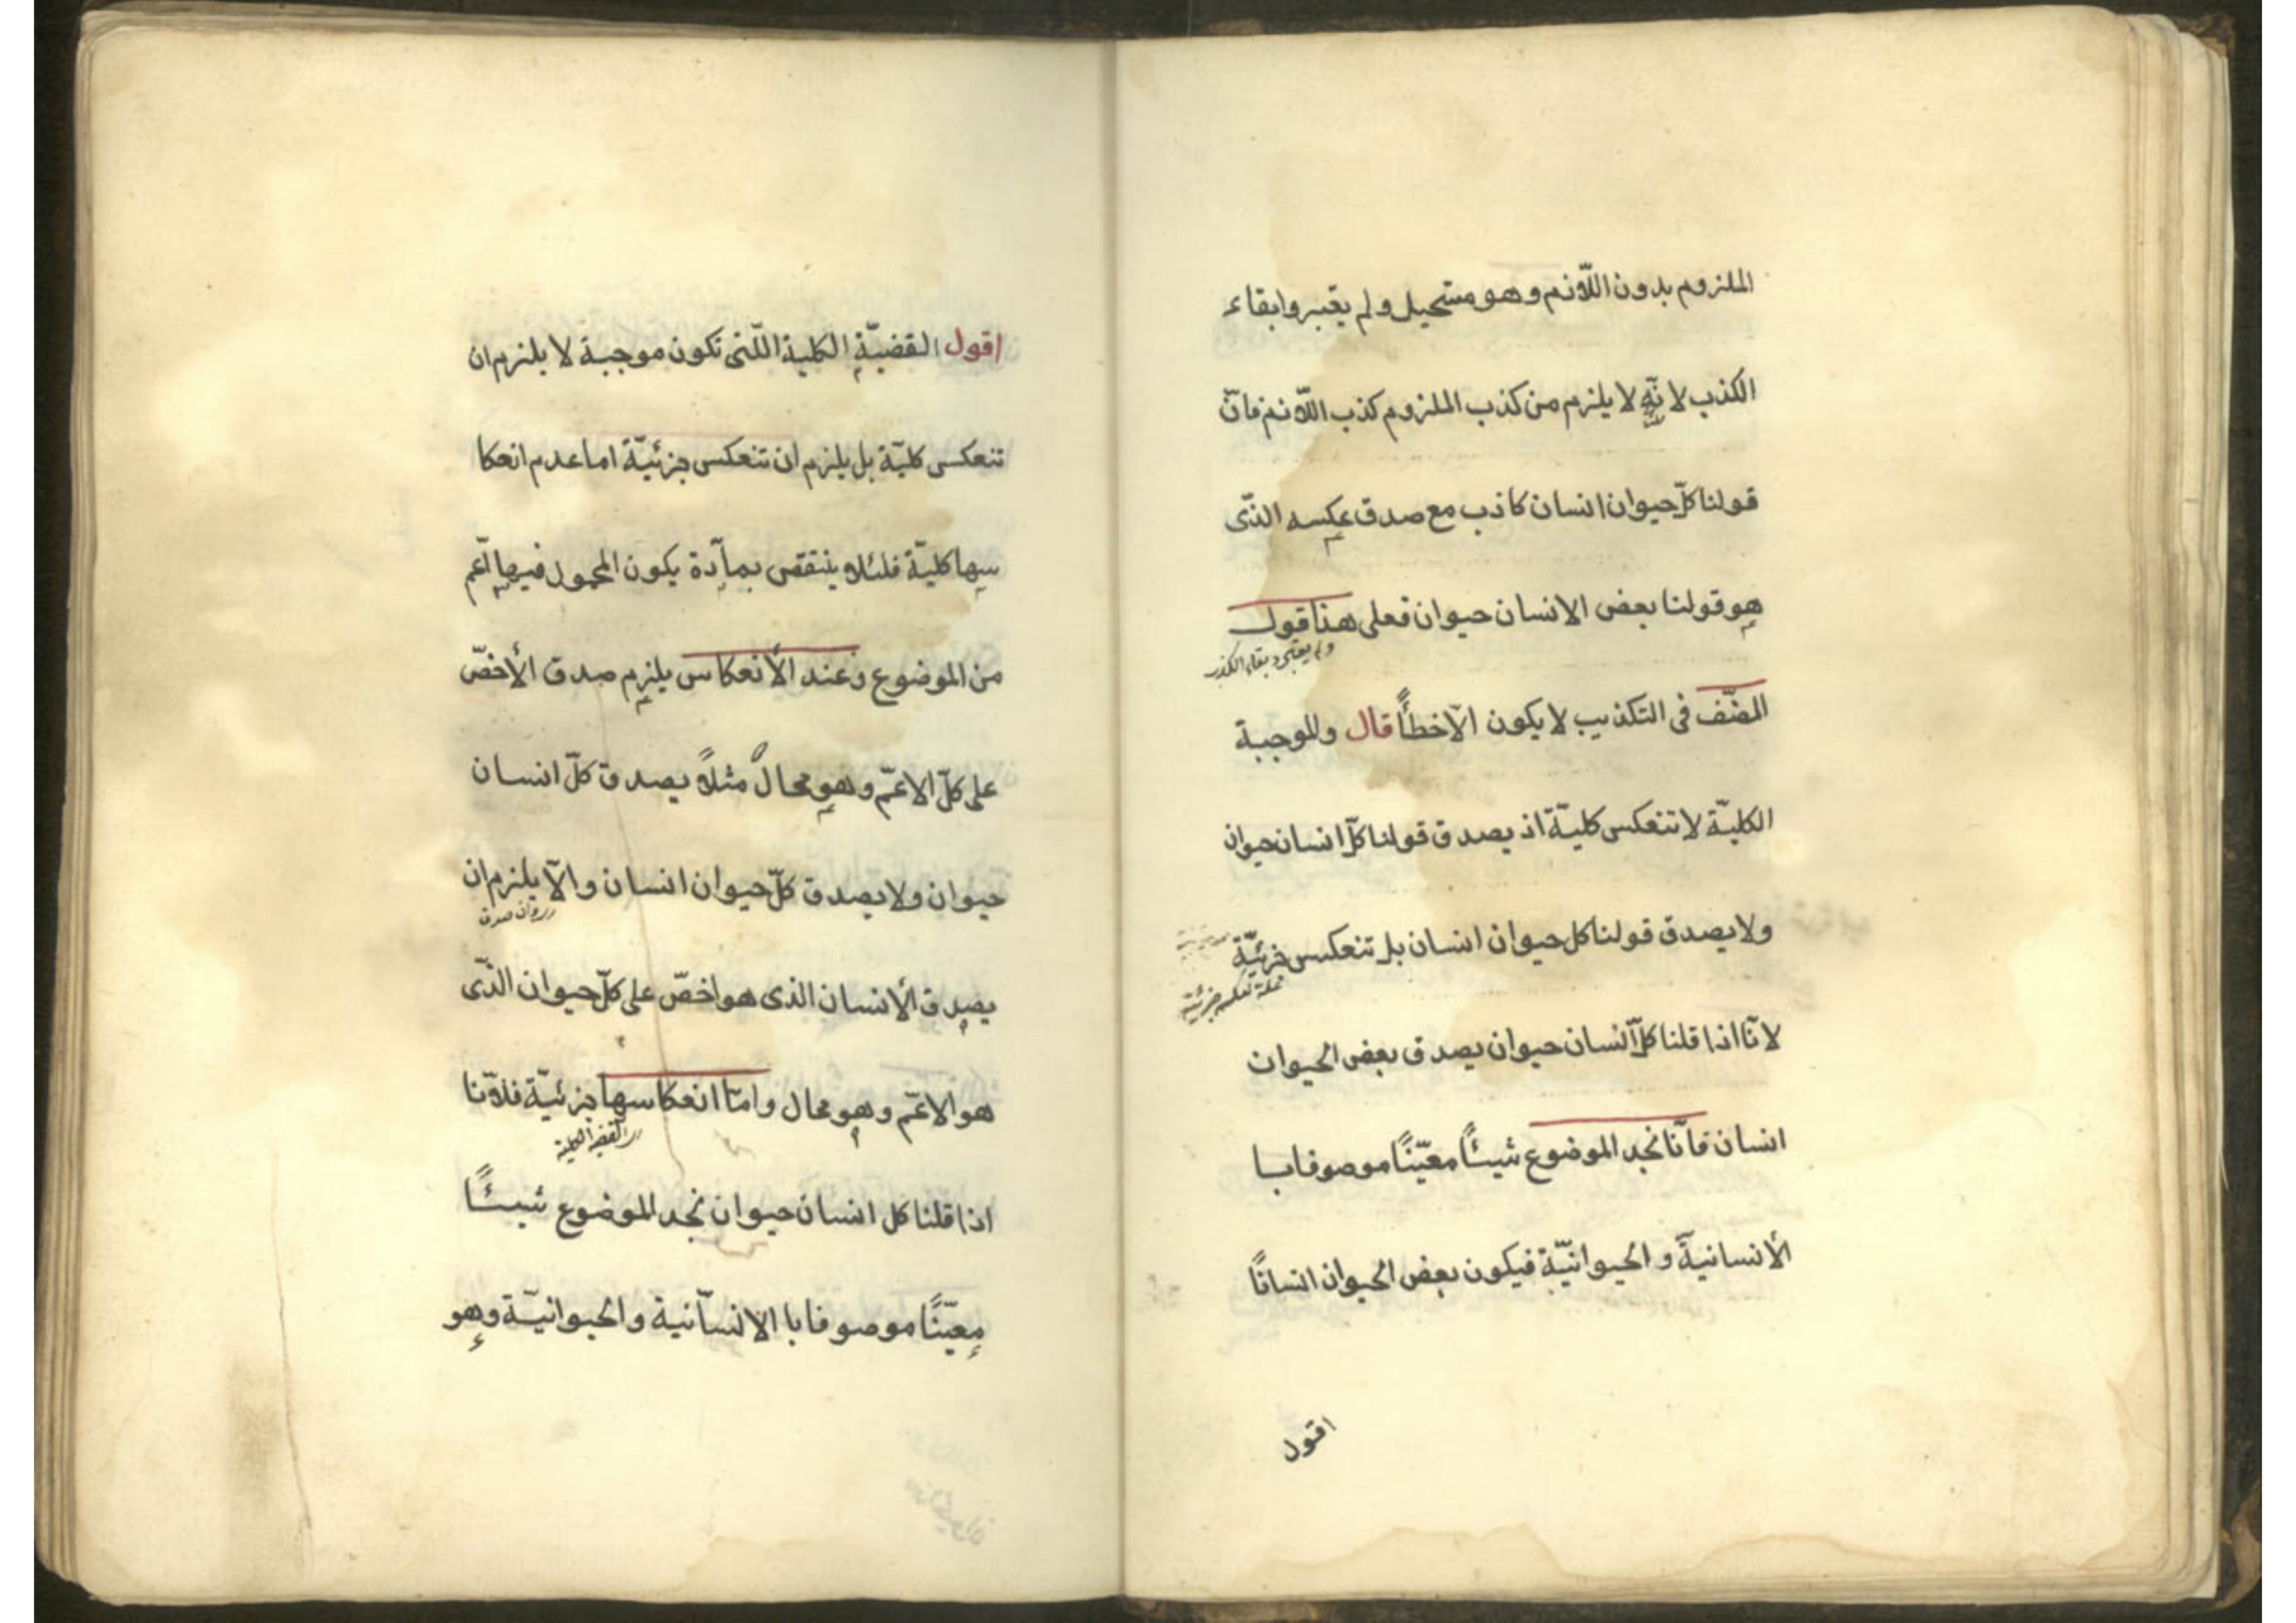 الملزوم بدون اللّازم وهو مستحيل ولم يعتبروا بقاء
الكذب لانّه لا يلزم من كذب الملزوم كذب اللّازم فانّ
قولنا كلّ حيوان انسان كاذب مع صدق عكسه الذّى
هو قولنا بعض الانسان حيوان فعلى هذا قول
ولم يعتبروا بقاء الكذب
المصنّف فى التكذيب لا يكون الّا خطأً قال وللموجبة
الكليّة لا تنعكس كليّة اذ يصدق قولنا كلّ انسان حيوان
ولا يصدق قولنا كل حيوان انسان بل تنعكس جزئيّة
لانّا اذا قلنا كلّ انسان حيوان يصدق بعض الحيوان
انسان فانّا نجد الموضوع شيئًا معيّنًا موصوفا با
الأنسانيّة و الحيوانيّة فيكون بعض الحيوان انسانًا
اقول
اقول القضيّة الكلية اللّتى تكون موجبة لا يلزم ان
تنعكس كليّة بل يلزم ان تنعكس جزئيّة اما عدم انعكا
سها كليّة فلئلا ينتقض بمآدّة يكون المحمول فيها اعّم
من الموضوع وعند الأنعكاس يلزم صدق الأخصّ
على كلّ الاعمّ وهو محالٌ مثلاً يصدق كلّ انسان
حيوان ولا يصدق كلّ حيوان انسان والّا يلزم ان
يصدق الأنسان الذى هو اخصّ على كلّ حيوان الذّى
هو الاعمّ وهو محال وامّا انعكاسها جزئيّة فلانّا
القضية الكلية
اذا قلنا كل انسان حيوان نجد الموضوع شيئًا
معيّنًا موصوفا با الانسانية والحيوانيّة وهو